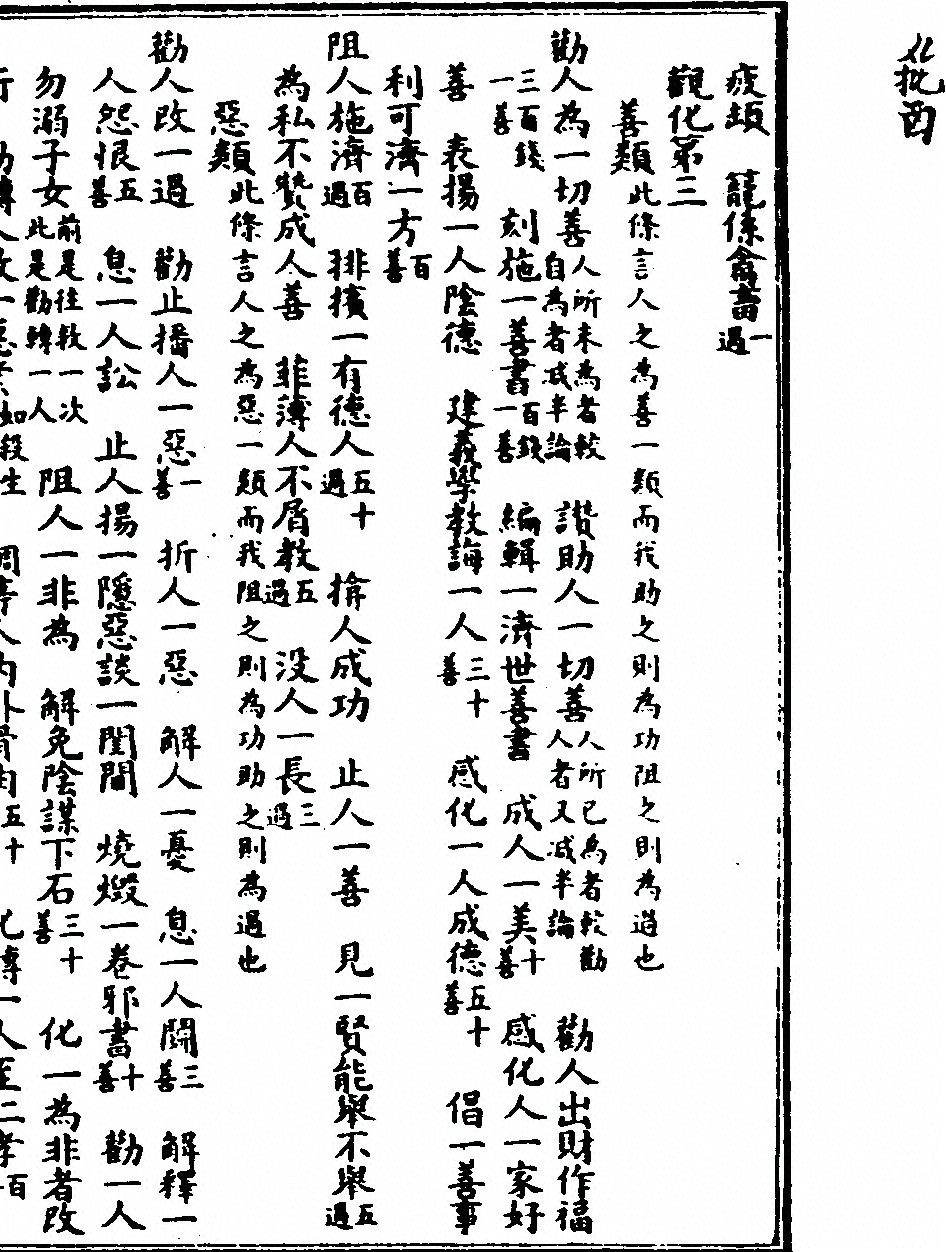 批酉
疲頓　籠係禽畜一過
觀化第三
善類此條言人之為善一類而我助之則為功阻之則為過也
勸人為一切善人所未為者較自為者減半論　讚助人一切善人所已為者較勸人者又減半論　勸人出財作福
三百錢一善　刻施一善書百錢一善　編輯一濟世善書　成人一美十善　感化人一家好
善　表揚一人陰德　建義學教誨一人三十善　感化一人成德五十善　倡一善事
利可濟一方百善
阻人施濟百過　排擯一有德人五十過　揜人成功　止人一善　見一賢能舉不舉五過
為私不贊成人善　菲薄人不屑教五過　沒人一長三過
惡類此條言人之為惡一類而我阻之則為功助之則為過也
勸人改一過　勸止播人一惡一善　折人一惡　解人一憂　息一人鬪三善　解釋一
人怨恨五善　息一人訟　止人揚一隱惡談一閨閫　燒燬一卷邪書十善　勸一人
勿溺子女前是往救一次此是勸轉一人　阻人一非為　解免陰謀下石三十善　化一為非者改
行　勸轉人改一惡業如殺生　調停人內外骨肉五十　化轉一人至二孝百